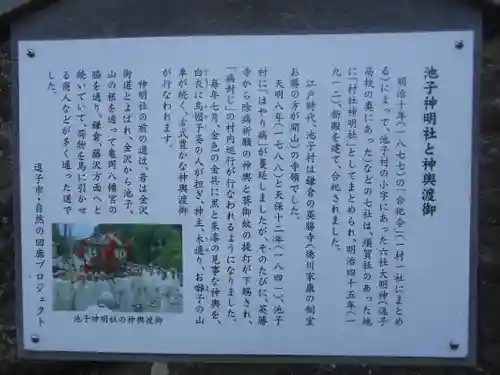 池子神明社と神輿渡御
明治十年(一八七七)の「合祀令(一村一社にまとめ
る)によって、池子村の小字にあった六社大明神(逗子
高校の奥にあった)などの七社は、須賀社のあった地
に「村社神明社」としてまとめられ、明治四十五年(一
九一二)、新殿を建て、合祀されました。
江戸時代、池子村は鎌倉の英勝寺(徳川家康の側室
お勝の方が開山)の寺領でした。
天明八年(一七八八)と天保十二年(一八四一)、池子
村に「はやり病」が蔓延しましたが、そのたびに、英勝
寺から除病祈願の神輿と葵御紋の提灯が下賜され、
「病封じ」の村内巡行が行なわれるようになりました。
毎年七月、金色の金具に黒と朱漆の見事な神輿を、
白衣に烏帽子姿の人が担ぎ、神主、木遣り、お囃子の山
車が続く、古式豊かな神輿渡御
が行なわれます。
神明社の前の道は、昔は金沢
街道とよばれ、金沢から池子、
山の根を通って亀岡八幡宮の
脇を通り鎌倉・藤沢方面へと
続いていて、荷物を馬に引かせ
る商人などが多く通った道で
した。
池子神明社の神輿渡御
逗子市・自然の回廊プロジェクト